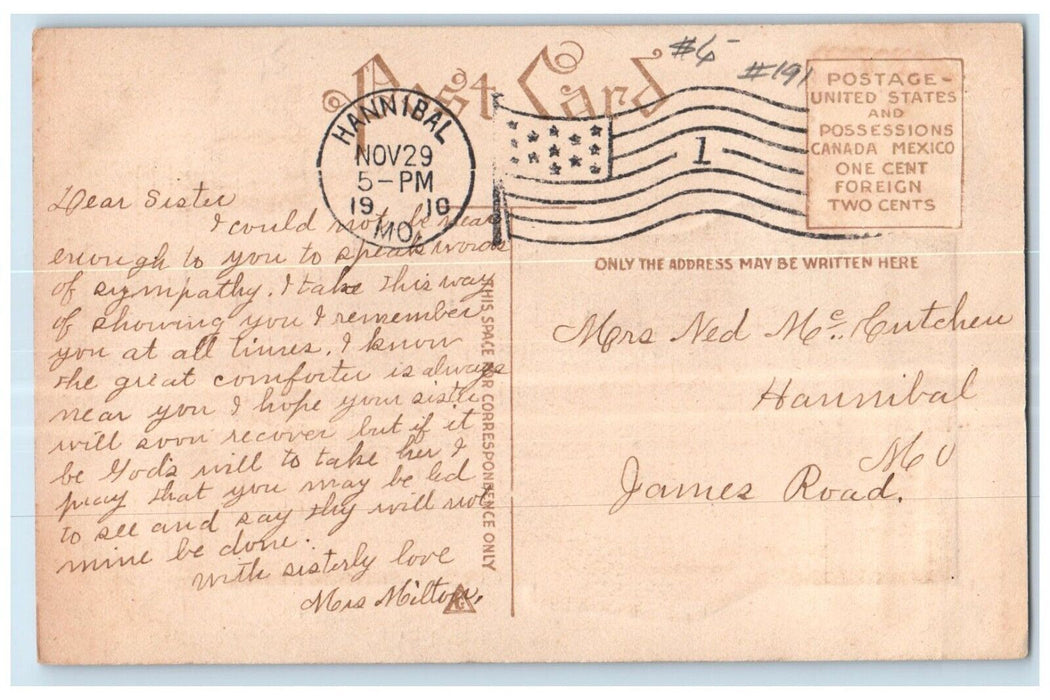 Post Card
#6
#191
HANNIBAL
NOV 29
5-PM
19 10
MO.
1
POSTAGE-
UNITED STATES
AND
POSSESSIONS
CANADA MEXICO
ONE CENT
FOREIGN
TWO CENTS
Dear Sister
I could not be near
enough to you to speak words
of sympathy. I take this way
of showing you I remember
you at all times. I know
the great comforter is always
near you I hope your sister
will soon recover but if it
be God's will to take her I
pray that you may be led
to see and say thy will not
mine be done.
with sisterly love
Mrs Milton.
THIS SPACE FOR CORRESPONDENCE ONLY
ONLY THE ADDRESS MAY BE WRITTEN HERE
Mrs Ned Mc. Cutchen
Hannibal
Mo
James Road.